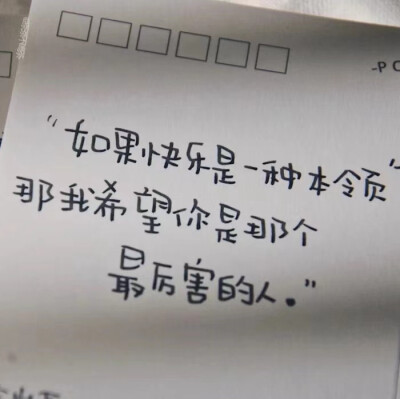 -PO
“如果快乐是一种本领”
那我希望你是那个
最厉害的人。”